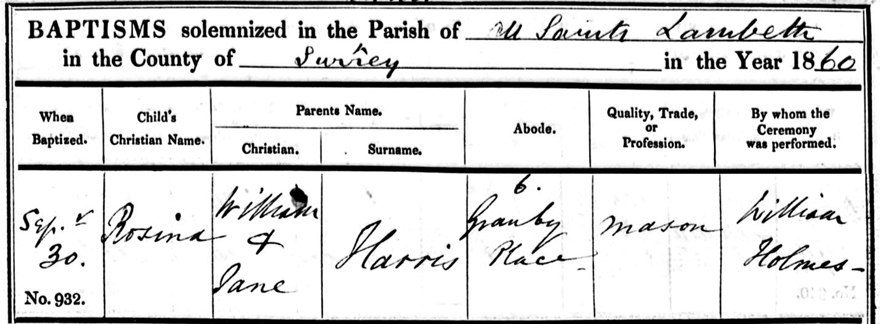 BAPTISMS solemnized in the Parish of All Saints Lambeth
in the County of Surrey in the Year 1860
When Baptized.
Child's Christian Name.
Parents Name.
Christian.
Surname.
Abode.
Quality, Trade, or Profession.
By whom the Ceremony was performed.
Sep.r
30.
No. 932.
Rosina
William
&
Jane
Harris
6.
Granby
Place
Mason
William
Holmes